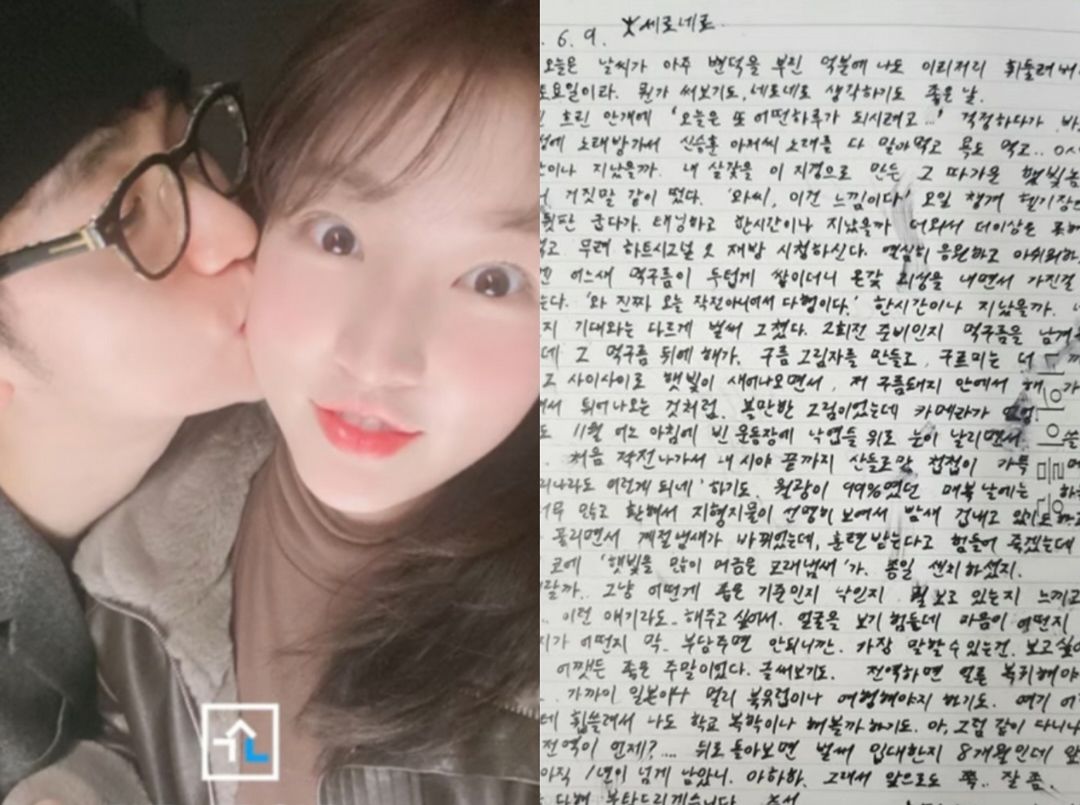 6. 9. 세로네로.
오늘은 날씨가 아주 변덕을 부린 덕분에 나도 이리저리 휘둘려버
토요일이라. 뭔가 써보기도, 네로네로 생각하기도 좋은 날.
흐린 안개에 '오늘은 또 어떤하루가 되시려고...' 걱정하다가.
노래방가서 신승훈 아저씨 노래를 다 말아먹고 욕도 먹고..
이나 지났을까. 내 살갗을 이 지경으로 만든 그 따가운 햇빛놈
거짓말 같이 떴다. '와씨, 이건 느낌이다' 오일 챙겨 헬기장
뒷판 굽다가. 태닝하고 한시간이나 지났을까 더와서 더이상은
무려 하트시그널 오 재방 시청하신다. 열심히 응원하고 아쉬워하
어느새 먹구름이 두텁게 쌓이더니 온갖 괴성을 내면서 가진걸
는다. '와 진짜 오늘 작전아니여서 다행이다.' 한시간이나 지났을까.
지 기대와는 다르게 벌써 그쳤다. 2회전 준비인지 먹구름을 남겨
데 그 먹구름 뒤에 해가. 구름 그림자를 만들고, 구르미는 더
그 사이사이로 햇빛이 새어나오면서, 저 구름돼지 안에서 해가
서 튀어나오는 것처럼. 볼만한 그림이었는데 카메라가
도 11월 어느 아침에 빈 운동장에 낙엽들 위로 눈이 날리면서
처음 작전나가서 내 시야 끝까지 산들로만 첩첩이 가득
리나라도 이렇게 되네' 하기도. 월광이 99%였던 매복 날에는
너무 맑고 환해서 지형지물이 선명히 보여서 밤새 겁내고 있기도 하고
풀리면서 계절냄새가 바뀌었는데, 훈련받는다고 힘들어 죽겠는데
코에 '햇빛을 많이 머금은 모래냄새'가. 종일 센치하셨지.
랄까.. 그냥 어떤게 좋은 기준인지 낙인지 뭘 보고 있는지 느끼고
.. 이런 얘기라도.. 해주고 싶어서. 얼굴을 보기 힘든데 마음이 어떤지
지가 어떤지 막. 부담주면 안되니깐. 가장 말할수 있는건. 보고싶어
어쨌든 좋은 주말이었다. 글써보기도. 전역하면 얼른 복귀해야
가까이 일본이나 멀리 북유럽이나 여행해야지 하기도. 여기
데 휩쓸려서 나도 학교 복학이나 해볼까 하기도. 아, 그럼 같이 다니나
전역이 언제?.... 뒤로 돌아보면 벌써 입대한지 8개월인데 앞
아직 1년이 넘게 남았니. 아하하. 그래서 앞으로도 쭉.. 잘 좀.
부탁드리겠습니다.